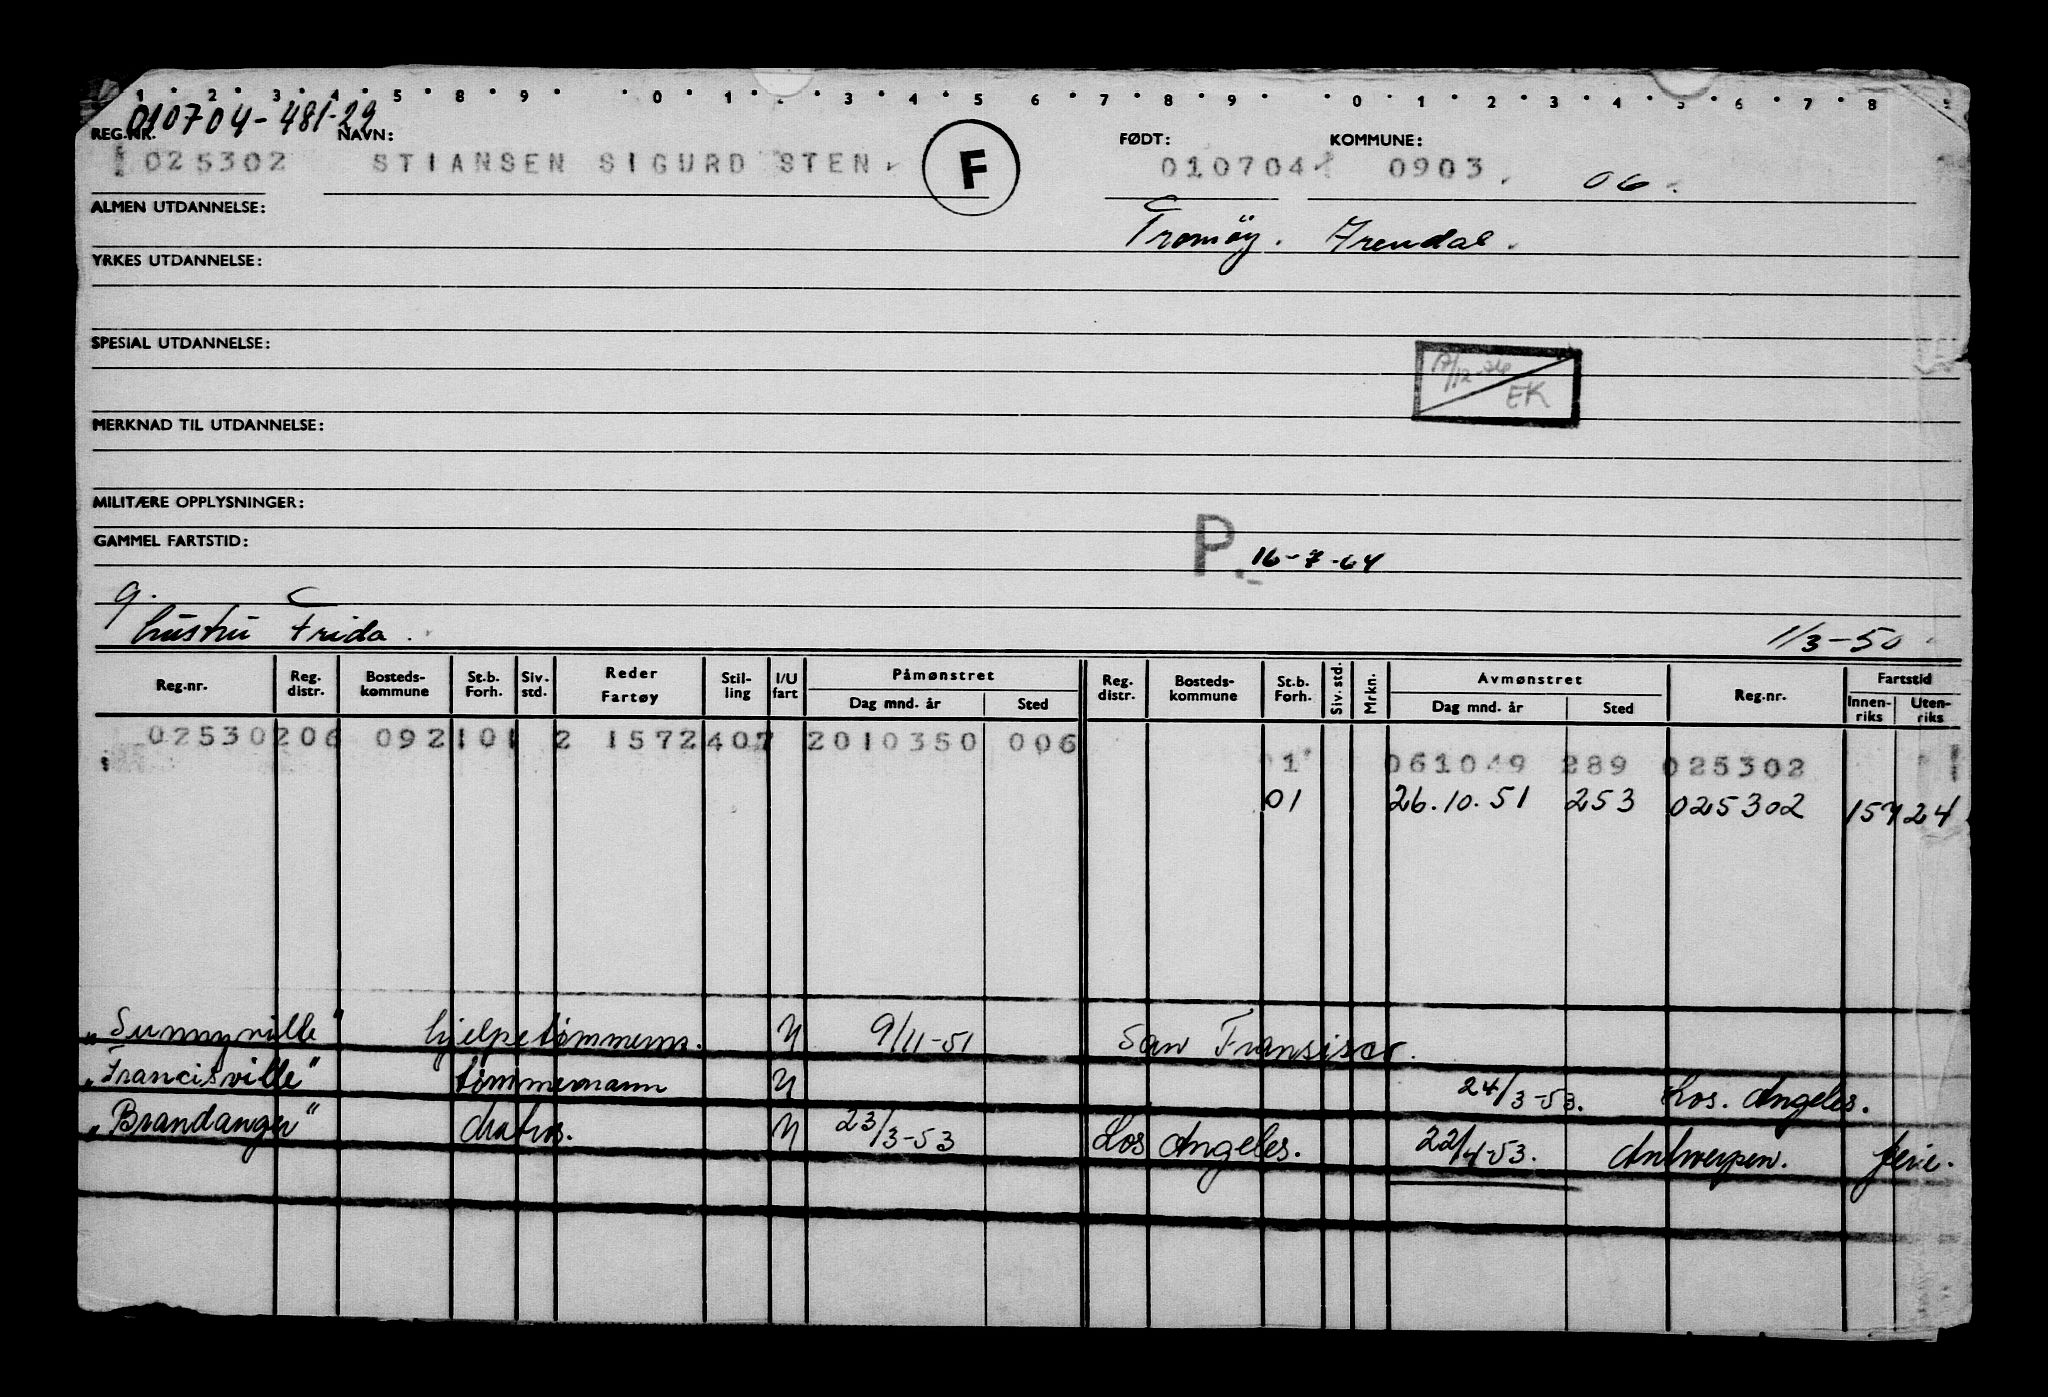 1 2 3 4 5 8 9 0 1 3 4 5 6 7 8 9 0 1 2 3 4 5 6 7 8
010704-481-29
REG.NR. NAVN: FØDT: KOMMUNE:
025302 STIANSEN SIGURD STEN F 010704 0903 06
ALMEN UTDANNELSE:
Tromöy. Arendal.
YRKES UTDANNELSE:
SPESIAL UTDANNELSE:
EK
MERKNAD TIL UTDANNELSE:
MILITÆRE OPPLYSNINGER:
GAMMEL FARTSTID:
P. 16-7-64
g.
hustru Frida. 1/3-50
Reg.nr. Reg. distr. Bosteds-kommune St.b. Forh. Siv. std. Reder Fartøy Stil-ling I/U fart Påmønstret Dag mnd. år Sted Reg. distr. Bosteds-kommune St.b. Forh. Siv. std. Mrkn. Avmønstret Dag mnd. år Sted Reg.nr. Fartstid Innen-riks Uten-riks
025302 06 0921 01 2 1572 407 2010350 006
1 061049 289 025302
01 26.10.51 253 025302 157 24
"Sunnyville" hjelpetømmerm. U 9/11-51 San Fransisco.
"Francisville" tømmermann U 24/3-53. Los. Angeles.
"Brandanger" Matros. U 23/3-53 Los Angeles. 22/4-53. Antwerpen. ferie.